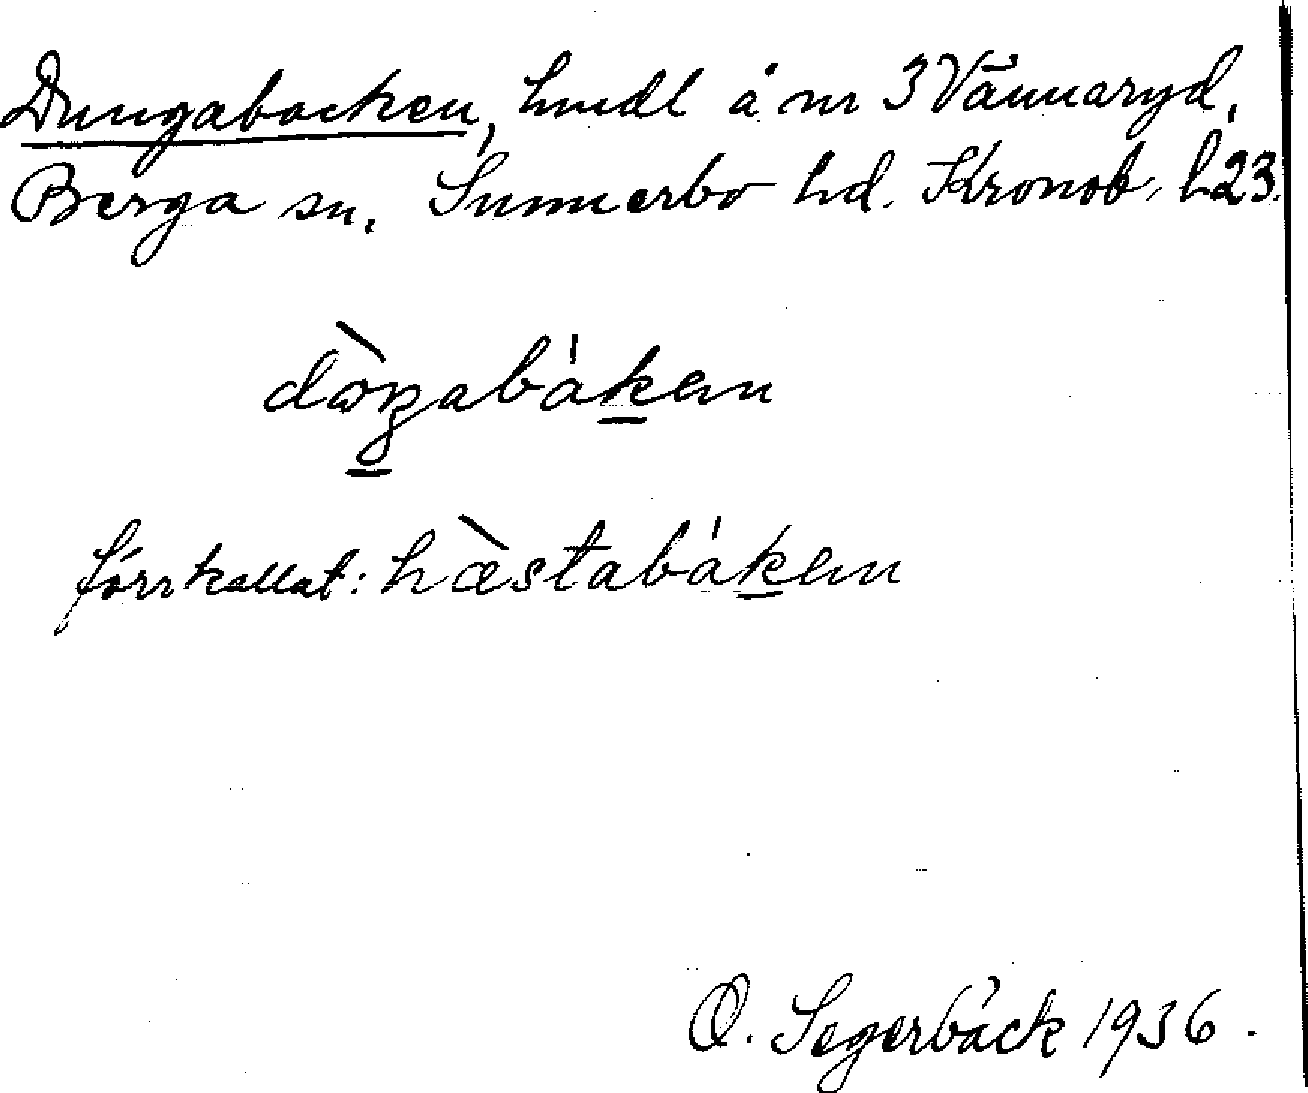 Dungabacken, hmdl å nr 3 Vännaryd,
Berga sn. Sunnerbo hd. Kronob. l. 23.
förr kallat: hæ̀stabákan
O. Segerbäck 1936.